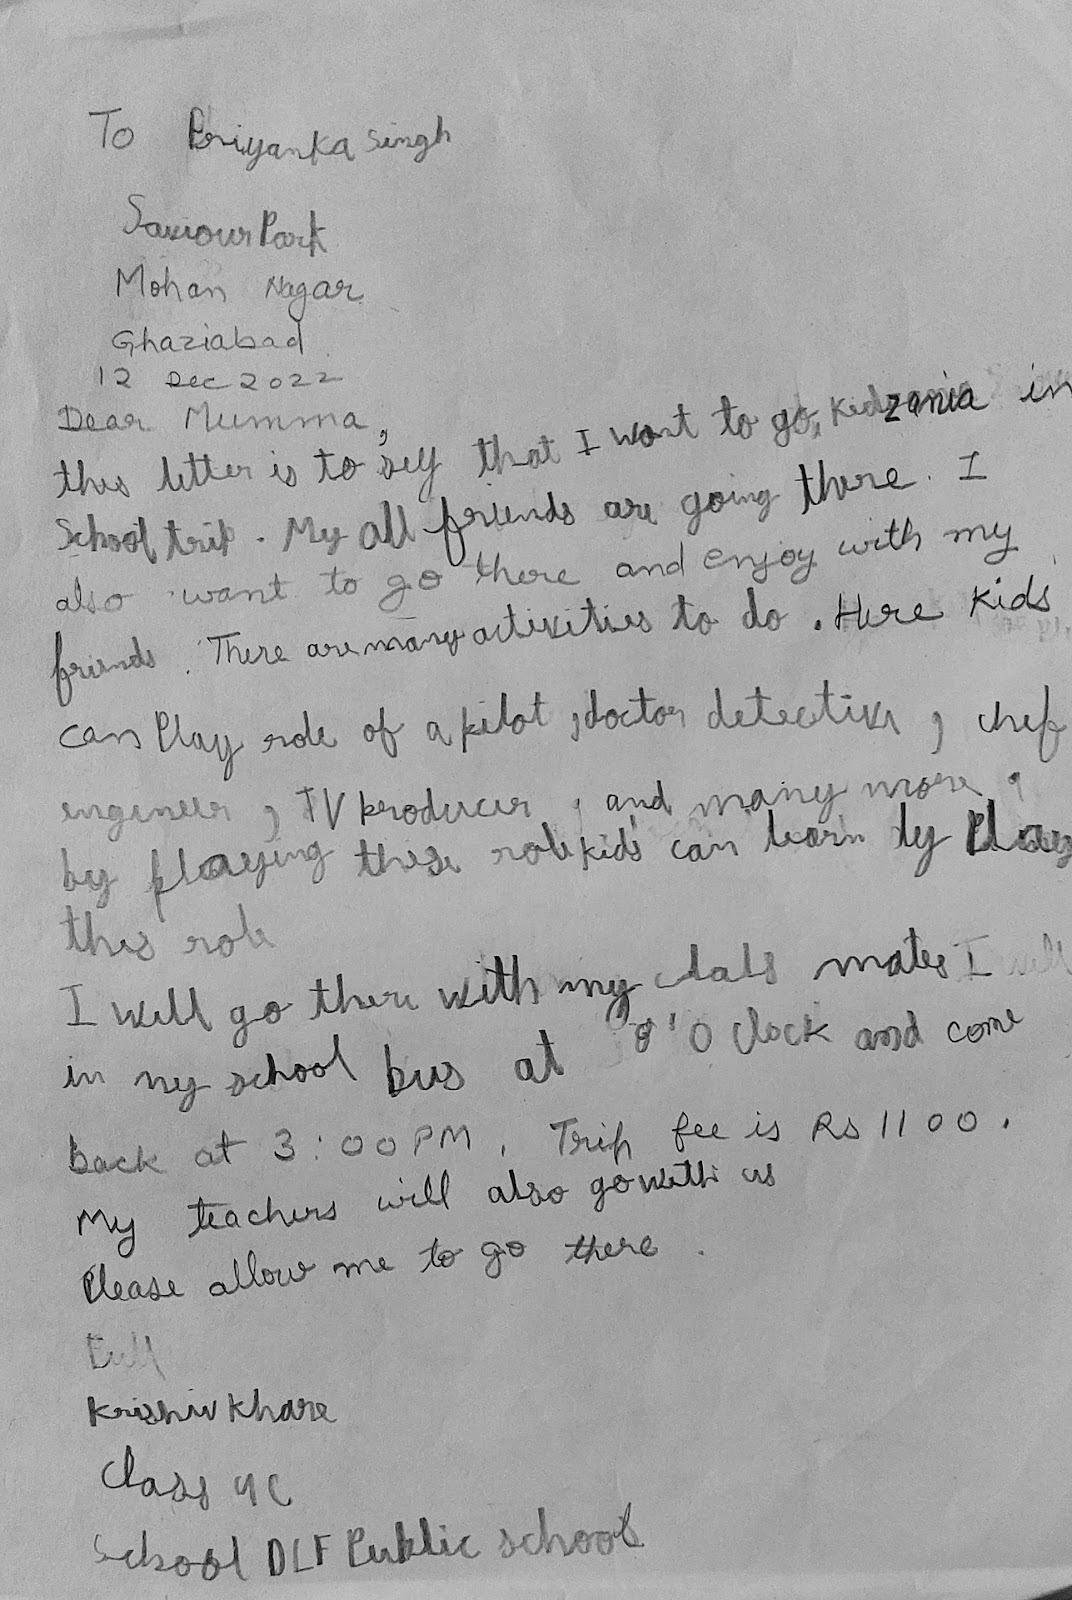 To Priyanka Singh
Saviour Park
Mohan Nagar
Ghaziabad
12 Dec 2022
Dear Mumma,
this letter is to sey that I want to go, Kidzania in
School trip. My all friends are going there. I
also want to go there and enjoy with my
friends. There are many activities to do. Here Kids
can Play role of a pilot, doctor detective, chef
engineer, TV producer, and many more,
by playing these role kids can learn by Play
this role
I will go there with my class mates I will
in my school bus at '8' O Clock and come
back at 3:00 PM. Trip fee is Rs 1100.
My teachers will also go with us
Please allow me to go there.
Krishiv Khare
Class 4 C
School DLF Public school